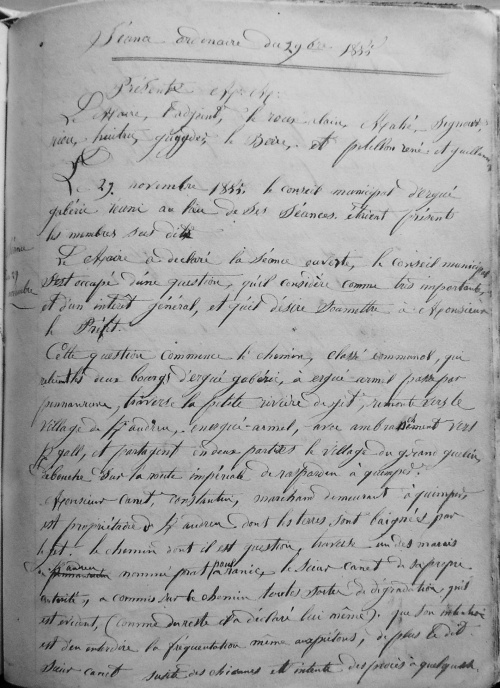 Séance ordinaire du 29 9bre 1855
Présents MM:
Le Maire, l'adjoint, le roux alain, Mahé, Signour,
riou, huitric, Gugguen, le Berre, et petillon rené et guillaume
Le 29 novembre 1855 le conseil municipal d'ergué
gabéric réuni au lieu de ses séances étaient présents
les membres sus dit
Le Maire a déclaré la séance ouverte, le conseil municipal
s'est occupé d'une question, qu'il considère comme très importante,
et d'un intérêt général, et qu'il désire soumettre à Monsieur
le Préfet.
29
novembre
Cette question commence le chemin, classé communal, qui
relient les deux bourgs d'ergué gabéric, à ergué armel passe par
pennanrun, traverse la petite rivière de jet, remonte vers le
village de St andreu, en ergué-armel, avec embranchement vers
St yall, et partageant en deux parties le village du grand guelen,
débouche sur la route impériale de rosporden à quimper.
Monsieur canet, constantin, marchand demeurant à quimper
est propriétaire à St andreu dont les terres sont baignées par
le jet. le chemin dont il est question, traverse un des marais
de St andreu nommé prat pour, le sieur canet de sa propre
autorité, a commis sur le chemin toutes sortes de dégradation, qu'il
est évident, (comme du reste il a déclaré lui même), que son intention
est d'en interdire la fréquentation même aux piétons; de plus le dit
sieur canet suscite des chicanes et intente des procès à quelques